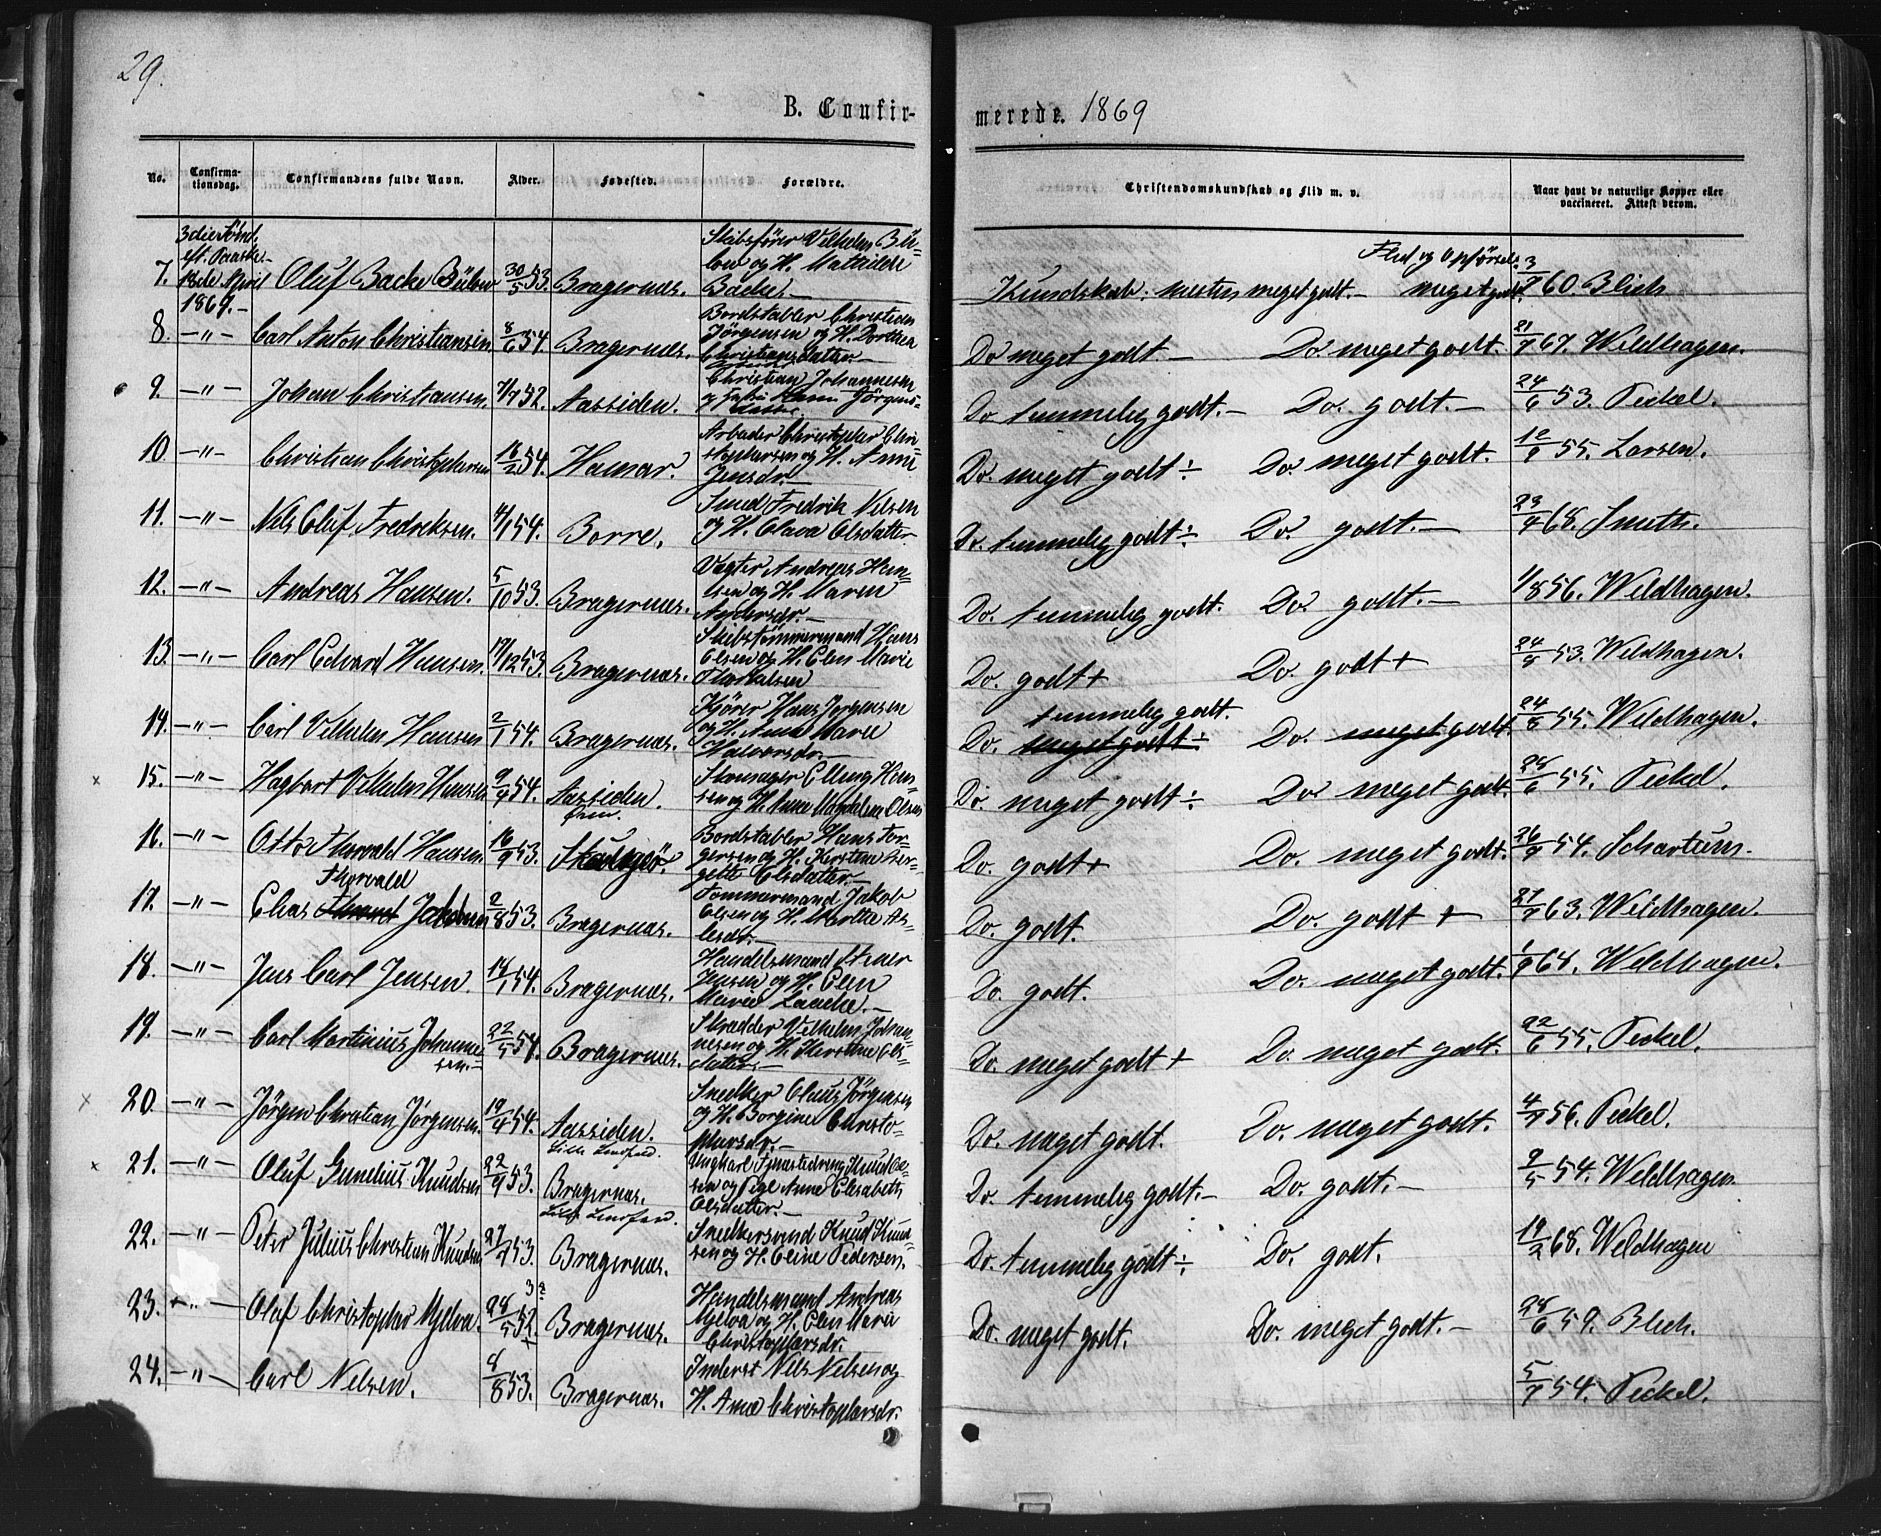 29.
B. Confir-
merede. 1869
No. Confirma-tionsdag. Confirmandens fulde Navn. Alder. Fødested. Forældre. Christendomskundskab og Flid m. v. Naar havt de naturlige Kopper eller vaccineret. Attest derom.
3die Sønd. eft. Paaske 18de April 1869.
7. Oluf Backe Bülow 30/5 53. Bragernæs. Skibsfører Vilhelm Bülow og H. Mathilde Backe. Kundskab: næsten meget godt. Flid og Opførsel: meget godt. 3/7 60. Blich
8. -"- Carl Anton Christiansen 8/6 54. Bragernæs. Bordstabler Christian Jørgensen og H. Dorthea Christiansdatter Do meget godt Do meget godt. 21/7 67. Wildhagen.
9. -"- Johan Christiansen. 7/7 52. Aassiden. Christian Johannesen Jørgens- Do. temmelig godt. Do. godt. 24/6 53. Peckel.
10. -"- Christian Christophersen 16/2 54. Hamar. Arbeider Christopher Christophersen og H. Anne Jensdr. Do. meget godt ÷ Do. meget godt. 55. Larsen.
11. -"- Nils Oluf Fredriksen. 54. Borre. Smed Fredrik Nilsen og H. Olava Olsdatter Do. temmelig godt ÷ Do. godt. 23/4 68. Smith.
12. -"- Andreas Hansen. 5/10 53. Bragernæs. Vægter Andreas Hansen og H. Maren Andersdr. Do. temmelig godt. Do. godt. 1/8 56. Wildhagen.
13. -"- Carl Edvard Hansen. 19/12 53. Bragernæs. Skibstømmermand Hans Olsen og H. Elen Marie Do. godt + Do. godt + 24/8 53. Wildhagen.
14. -"- Carl Vilhelm Hansen 2/1 54. Bragernæs. Kjører Hans Jørgensen og H. Anne Marie Halvorsdr. Do. meget godt ÷ temmelig godt. Do. meget godt 24/8 55. Wildhagen.
15. -"- Hagbart Vilhelm Hansen 9/4 54. Aassiden. Skomager Elling Hansen og H. Anne Magdalena Olsen Do. meget godt ÷ Do. meget godt. 28/6 55. Peckel.
16. -"- Otto Thorvald Hansen 16/9 53. Bordstabler Hans Torgersen og H. Kirstine Olsdatter. Do. godt + Do. meget godt. 26/9 54. Schartum.
17. -"- Elias Thorvald Jakobsen 2/8 53. Bragernæs. Tømmermand Jakob Olsen og H. Marthe Aslesdr. Do. godt. Do. godt + 27/7 63. Wildhagen.
18. -"- Jens Carl Jensen. 18/1 54. Bragernæs. Handelsmand Stener Jensen og H. Elen Marie Laache. Do. godt. Do. meget godt. 1/9 64. Wildhagen.
19. -"- Carl Martinius Johannesen. 22/5 54. Bragernæs. Skrædder Vilhelm Johannesen og H. Kirstine Olsdatter. Do. meget godt + Do. meget godt. 22/6 55. Peckel.
20. -"- Jørgen Christian Jørgensen. 19/4 54. Aassiden. Snedker Claus Jørgensen og H. Borgine Christophersdr. Do. meget godt. Do. meget godt. 4/7 56. Peckel.
21. -"- Oluf Gunelius Knudsen 22/9 53. Bragernæs. Lille Landfald. Ungkarl Tjenestedreng Knud Olsen og Pige Anne Elisabeth Olsdatter. Do. temmelig godt. Do. godt. 9/5 54. Wildhagen.
22. -"- Peter Julius Christian Knudsen 27/7 53. Bragernæs. Lille Landfald. Snedkersvend Knud Knudsen og H. Eline Pedersen. Do. temmelig godt ÷ Do. godt. 19/2 68. Wildhagen
23. -"- Olaf Christopher Mjelva. 28/5 52. Bragernæs. Handelsmand Andreas Mjelva og H. Elen Marie Christophersdr. Do. meget godt. Do. meget godt. 28/6 59. Blich.
24. -"- Carl Nilsen. 8/8 53. Bragernæs. Inderst Nils Nilsen og H. Anne Christophersdr. 5/7 54. Peckel.